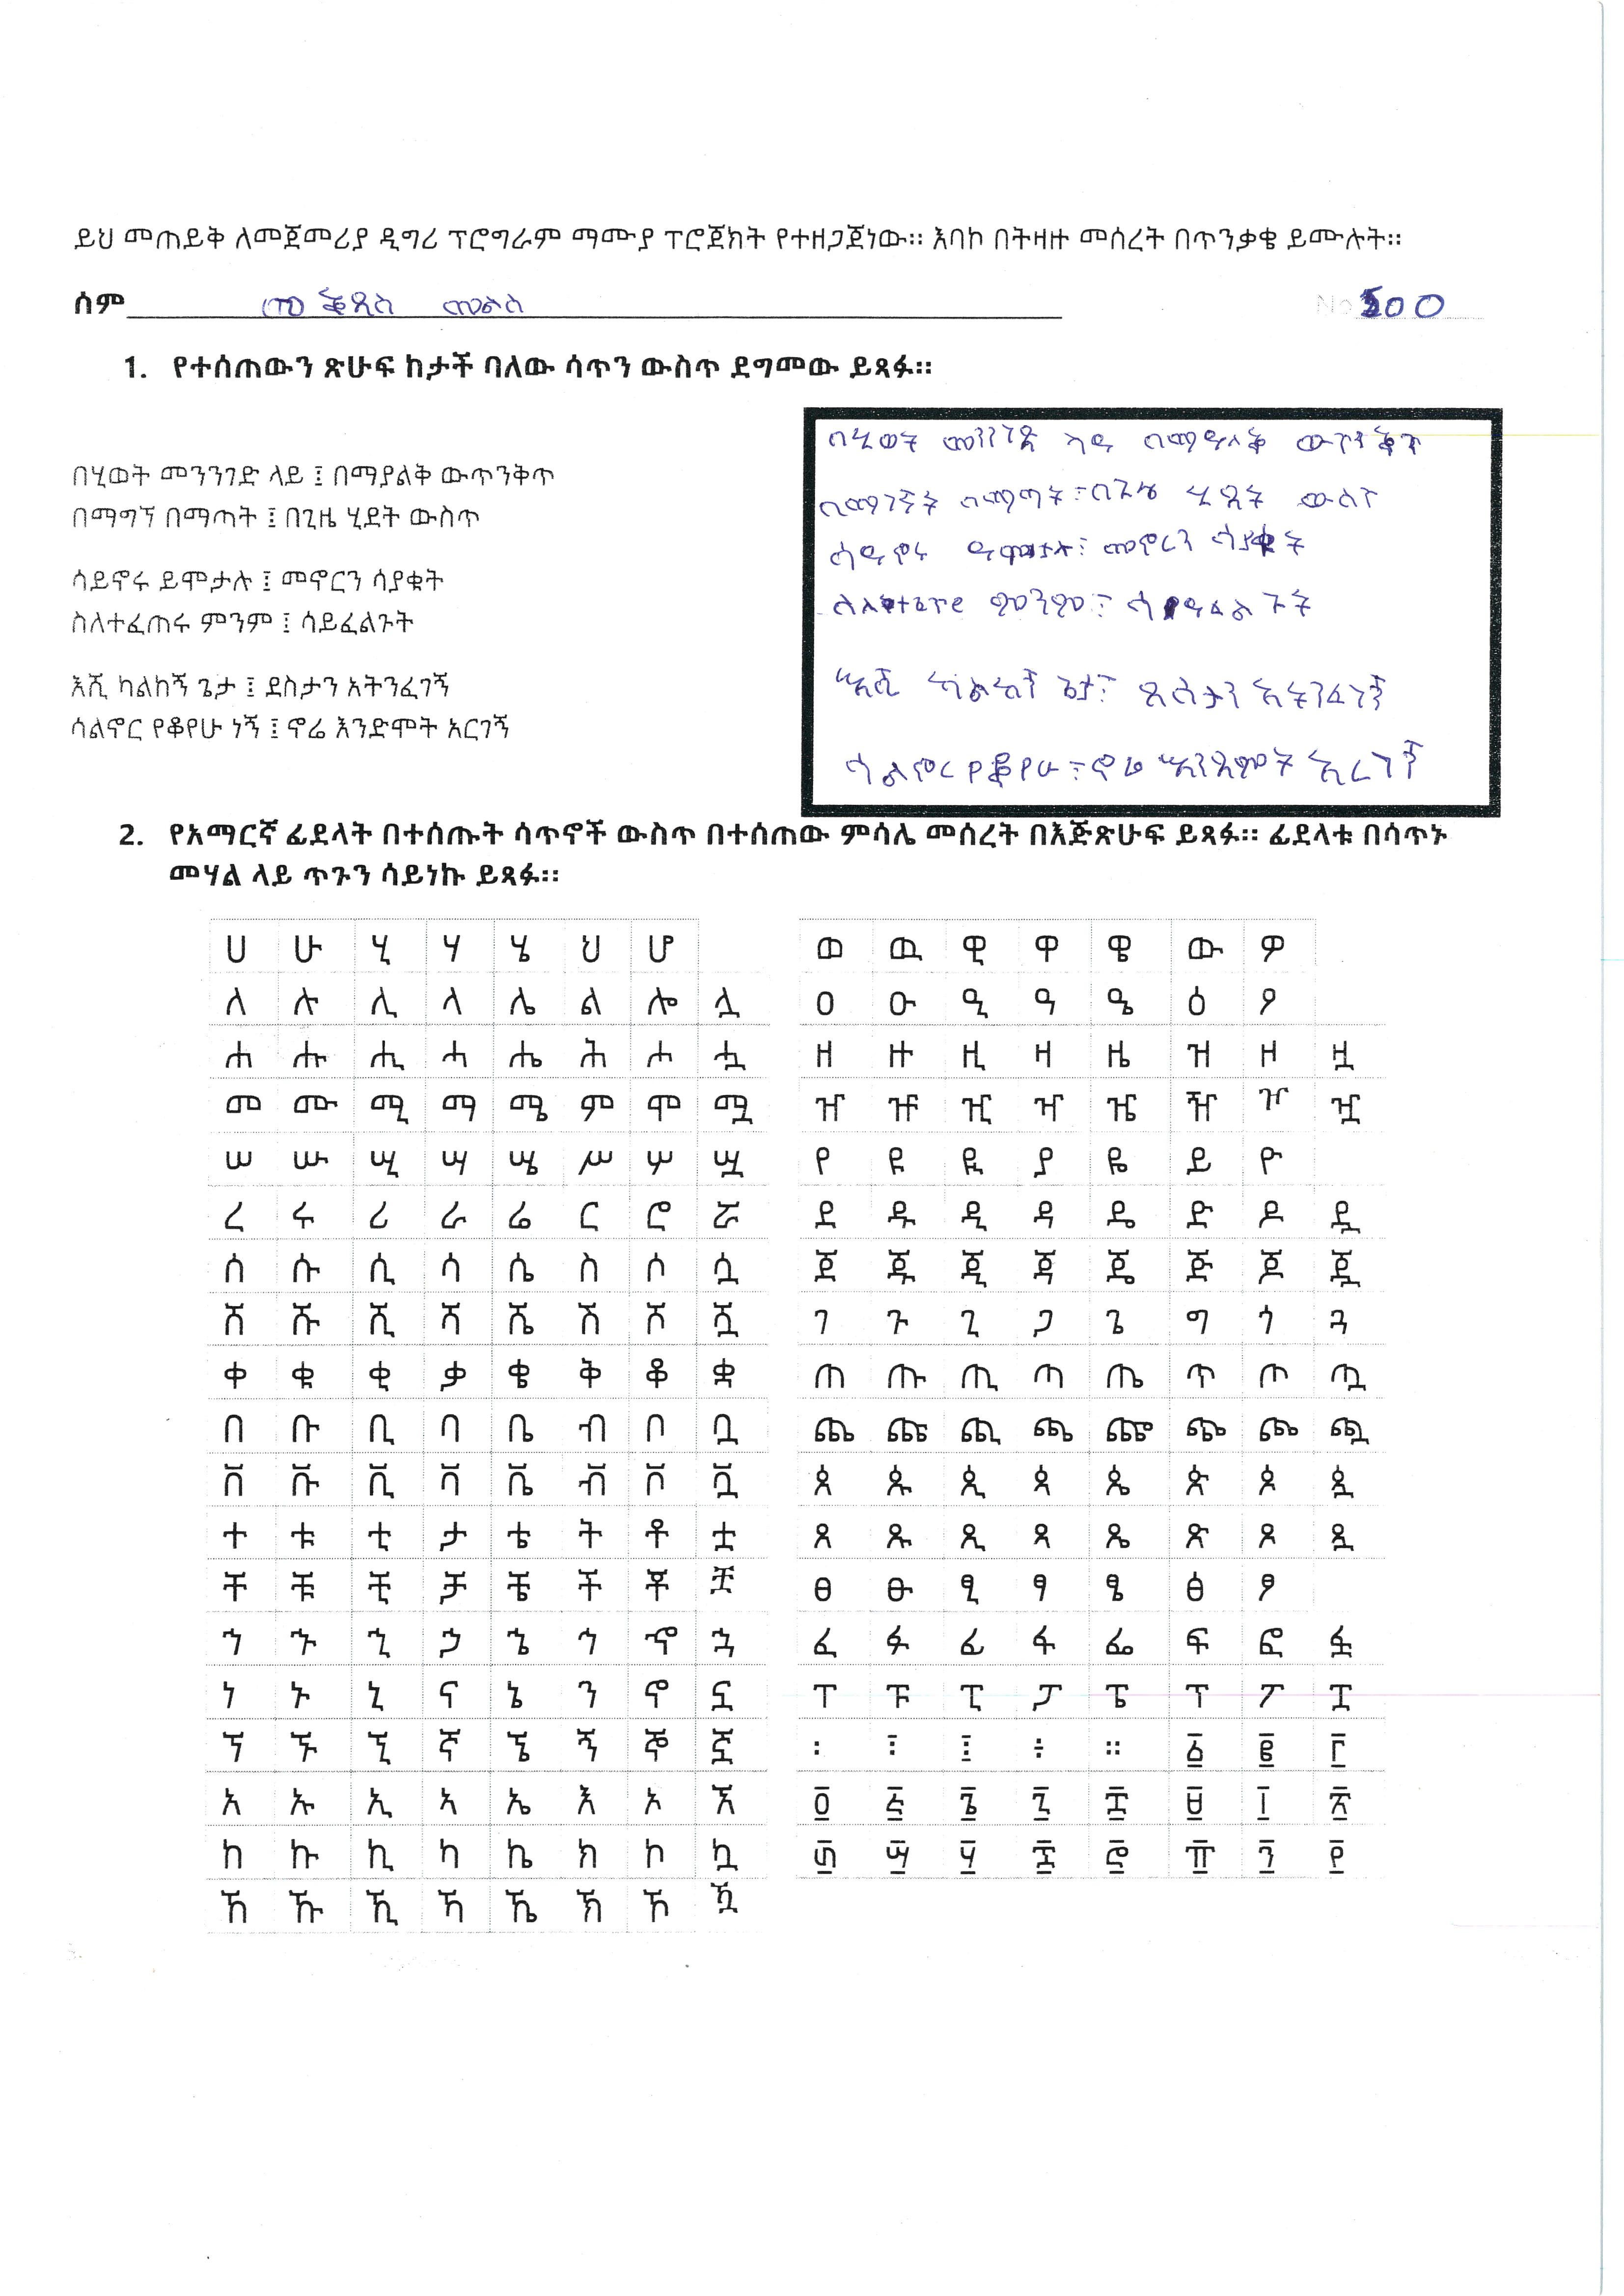 ይህ መጠይቅ ለመጀመሪያ ዲግሪ ፕሮግራም ማሙያ ፕሮጀክት የተዘጋጀነው። እባኮ በትዛዙ መሰረት በጥንቃቄ ይሙሉት።
ስም መቅደስ መልስ No 500
1. የተሰጠውን ጽሁፍ ከታች ባለው ሳጥን ውስጥ ደግመው ይጻፉ።
በሂወት መንንገድ ላይ ፤ በማያልቅ ውጥንቅጥ
በማግኘ በማጣት ፤ በጊዜ ሂደት ውስጥ
ሳይኖሩ ይሞታሉ ፤ መኖርን ሳያቁት
ስለተፈጠሩ ምንም ፤ ሳይፈልጉት
እሺ ካልከኝ ጌታ ፤ ደስታን አትንፈገኝ
ሳልኖር የቆየሁ ነኝ ፤ ኖሬ እንድሞት አርገኝ
በሂወት መንገድ ላይ በማያልቅ ውጥንቅጥ
በማገኛት በማጣት፣በጊዜ ሂደት ውስጥ
ሳይኖሩ ይሞታሉ፣ መኖርን ሳያቁት
ስለተፈጥሮ ምንም፣ ሳይፈልጉት
እሺ ካልከኝ ጌታ፣ ደስታን አትንፈገኝ
ሳልኖር የቆየሁ፣ኖሬ እንድሞት አርገኝ
2. የአማርኛ ፊደላት በተሰጡት ሳጥኖች ውስጥ በተሰጠው ምሳሌ መሰረት በእጅጽሁፍ ይጻፉ። ፊደላቱ በሳጥኑ
መሃል ላይ ጥጉን ሳይነኩ ይጻፉ።
ሀ ሁ ሂ ሃ ሄ ህ ሆ
ለ ሉ ሊ ላ ሌ ል ሎ ሏ
ሐ ሑ ሒ ሓ ሔ ሕ ሖ ሗ
መ ሙ ሚ ማ ሜ ም ሞ ሟ
ሠ ሡ ሢ ሣ ሤ ሥ ሦ ሧ
ረ ሩ ሪ ራ ሬ ር ሮ ሯ
ሰ ሱ ሲ ሳ ሴ ስ ሶ ሷ
ሸ ሹ ሺ ሻ ሼ ሽ ሾ ሿ
ቀ ቁ ቂ ቃ ቄ ቅ ቆ ቋ
በ ቡ ቢ ባ ቤ ብ ቦ ቧ
ቨ ቩ ቪ ቫ ቬ ቭ ቮ ቯ
ተ ቱ ቲ ታ ቴ ት ቶ ቷ
ቸ ቹ ቺ ቻ ቼ ች ቾ ቿ
ኀ ኁ ኂ ኃ ኄ ኅ ኆ ኋ
ነ ኑ ኒ ና ኔ ን ኖ ኗ
ኘ ኙ ኚ ኛ ኜ ኝ ኞ ኟ
አ ኡ ኢ ኣ ኤ እ ኦ ኧ
ከ ኩ ኪ ካ ኬ ክ ኮ ኳ
ኸ ኹ ኺ ኻ ኼ ኽ ኾ ዃ
ወ ዉ ዊ ዋ ዌ ው ዎ
ዐ ዑ ዒ ዓ ዔ ዕ ዖ
ዘ ዙ ዚ ዛ ዜ ዝ ዞ ዟ
ዠ ዡ ዢ ዣ ዤ ዥ ዦ ዧ
የ ዩ ዪ ያ ዬ ይ ዮ
ደ ዱ ዲ ዳ ዴ ድ ዶ ዷ
ጀ ጁ ጂ ጃ ጄ ጅ ጆ ጇ
ገ ጉ ጊ ጋ ጌ ግ ጎ ጓ
ጠ ጡ ጢ ጣ ጤ ጥ ጦ ጧ
ጨ ጩ ጪ ጫ ጬ ጭ ጮ ጯ
ጰ ጱ ጲ ጳ ጴ ጵ ጶ ጷ
ጸ ጹ ጺ ጻ ጼ ጽ ጾ ጿ
ፀ ፁ ፂ ፃ ፄ ፅ ፆ
ፈ ፉ ፊ ፋ ፌ ፍ ፎ ፏ
ፐ ፑ ፒ ፓ ፔ ፕ ፖ ፗ
፡ ፣ ፤ ÷ ። ፩ ፪ ፫
፬ ፭ ፮ ፯ ፰ ፱ ፲ ፳
፴ ፵ ፶ ፷ ፸ ፹ ፺ ፻